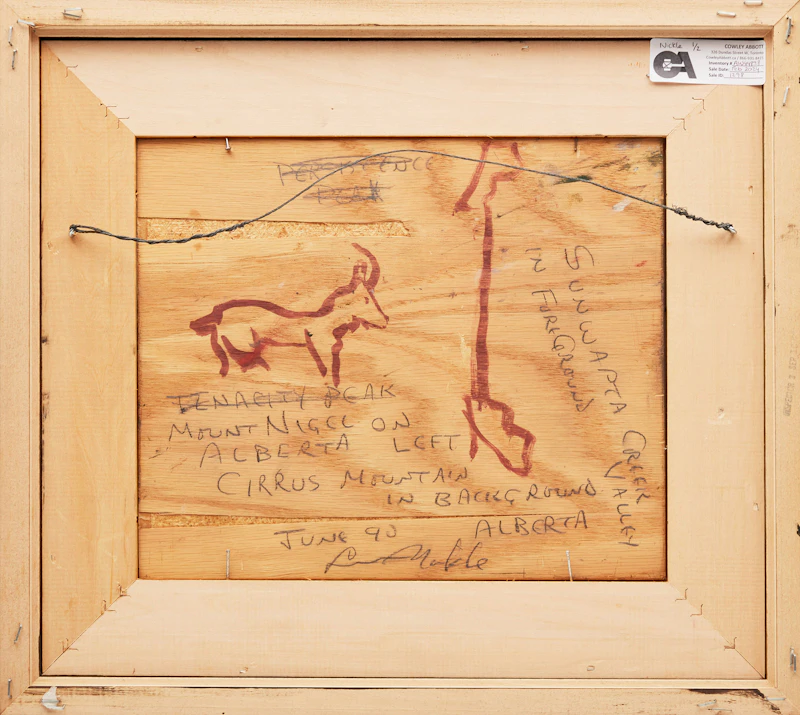 Nickle 1/2
COWLEY ABBOTT
326 Dundas Street W, Toronto
Inventory #
Sale Date:
Sale ID:
CA
PERSISTENCE
PEAK
SUNWAPTA CREEK VALLEY
IN FOREGROUND
TENACITY PEAK
MOUNT NIGEL ON
ALBERTA LEFT
CIRRUS MOUNTAIN
IN BACKGROUND
ALBERTA
JUNE 90